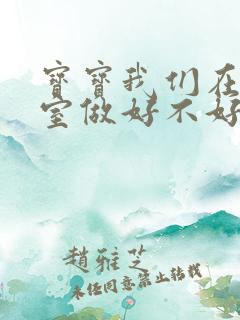 寳寳我们在
室做好不好
趙雅芝
未经同意禁止转载